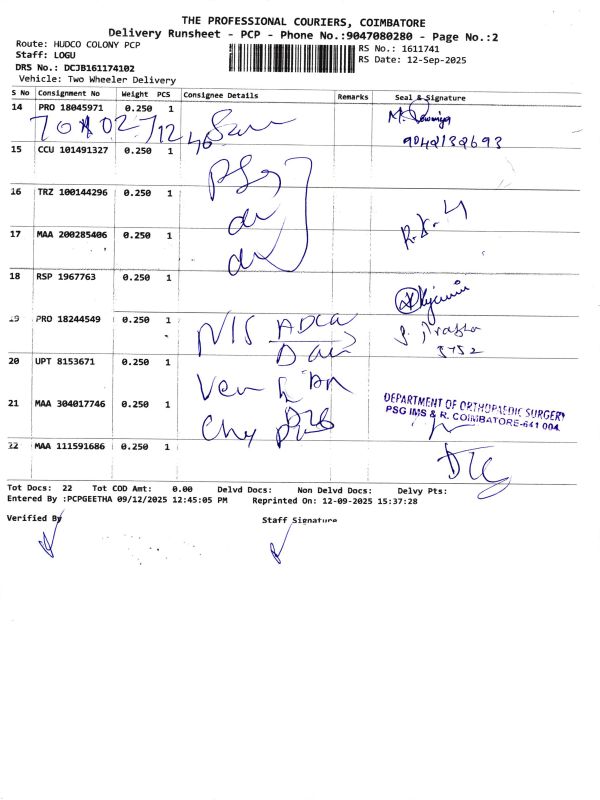 THE PROFESSIONAL COURIERS, COIMBATORE
Delivery Runsheet - PCP - Phone No.:9047080280 - Page No.:2
Route: HUDCO COLONY PCP
RS No.: 1611741
Staff: LOGU
RS Date: 12-Sep-2025
DRS No.: DCJB161174102
Vehicle: Two Wheeler Delivery
S No Consignment No Weight PCS Consignee Details Remarks Seal & Signature
14 PRO 18045971 0.250 1
9042132693
15 CCU 101491327 0.250 1
16 TRZ 100144296 0.250 1
17 MAA 200285406 0.250 1
18 RSP 1967763 0.250 1
19 PRO 18244549 0.250 1
5752
20 UPT 8153671 0.250 1
21 MAA 304017746 0.250 1
DEPARTMENT OF ORTHOPAEDIC SURGERY
PSG IMS & R. COIMBATORE-641 004.
22 MAA 111591686 0.250 1
Tot Docs: 22 Tot COD Amt: 0.00 Delvd Docs: Non Delvd Docs: Delvy Pts:
Entered By :PCPGEETHA 09/12/2025 12:45:05 PM Reprinted On: 12-09-2025 15:37:28
Verified By Staff Signature